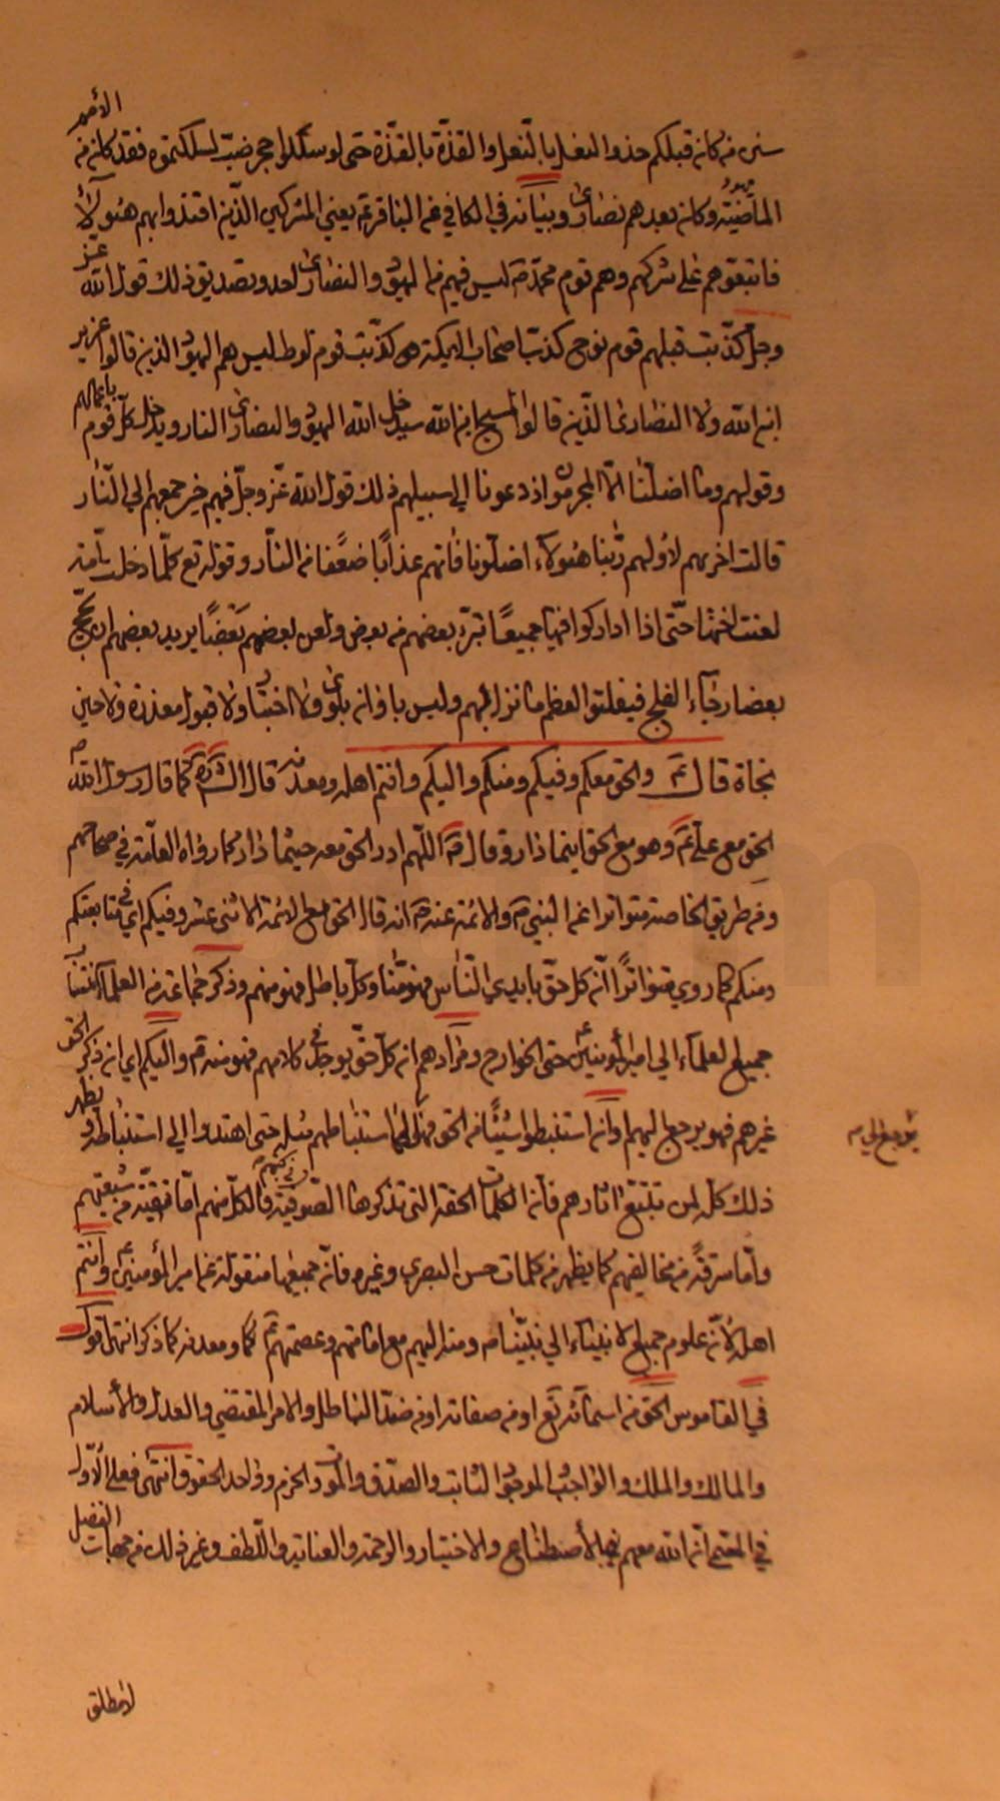 سنن من كان قبلكم حذو النعل بالنعل والقذة بالقذة حتى لو سلكوا جحر ضبّ لسلكتموه فقد كان من الأمم
الماضية يهود وكان بعدهم نصارى وبيانه في الكافي عن الباقر تم يعني المشركين الذين اقتدوا بهم هؤلاء
فاتبعوهم على شركهم وهم قوم محمد ص ليس فيهم من اليهود والنصارى احد وتصديق ذلك قول الله عز
وجلّ كذّبت قبلهم قوم نوح كذب اصحاب الايكة كذّبت قوم لوط ليس هم اليهود الذين قالوا عزير
ابن الله ولا النصارى الذين قالوا المسيح ابن الله سيدخل الله اليهود والنصارى النار ويدخل كلّ قوم باعمالهم
وقولهم وما اضلّنا الّا المجرمون اذ دعونا الى سبيلهم ذلك قول الله عزّ وجلّ فيهم حين جمعهم الى النّار
قالت اخريهم لاوليهم ربّنا هؤلاء اضلّونا فاتهم عذابا ضعفا من النّار وقوله تع كلّما دخلت امّة
لعنت اختها حتّى اذا اداركوا فيها جميعًا تبرّء بعضهم من بعض ولعن بعضهم بعضًا يريد بعضهم ان يحجّ
بعضا رجاء الفلج فيفلتوا من عظم ما نزل بهم وليس باوان بلوى ولا اختبار ولا قبول معذرة ولا حين
نجاة قال تم والحق معكم وفيكم ومنكم واليكم وانتم اهله ومعدنه قال الش ره كما قال رسول الله ص
الحق مع علي تم وهو مع الحق اينما دار وقال ص اللّهم ادر الحق معه حيثما دار كما رواه العامّة في صحاحهم
ومن طريق الخاصة متواترا عن النبي ص والائمة عنه ص انه قال الحق مع الائمة الاثنى عشر وفيكم اي في متابعتكم
ومنكم كما روي متواترًا انّه كل حقّ بايدي النّاس فهو منّا وكلّ باطل فهو منهم وذكر جماعة من العلماء انتساب
جميع العلماء الى امير المؤمنين ع حتى الخوارج ان كلّ حقّ يوجد في كلامهم فهو منه تم واليكم اي ان ذكر الحق
غيرهم فهو يرجع اليهم او انه استنبطوا شيئًا من الحق استنباطهم حتى اهتدوا الى استنباطه ويظهر
يرجع الى م
ذلك كلّه لمن تتبّع اثارهم فانّ الكلمات الحقة التى تذكرها الصّوفية في كتبهم فالكلّ منهم امّا من شيعتهم
وامّا سرقةً من مخالفيهم كما يظهر من كلمات حسن البصري وغيره فانّ جميعها منقولة عن امير المؤمنين ع وانتم
اهله لانّ علوم جميع الانبياء الى نبيّنا ص ومنه اليهم مع امامتهم وعصمتهم تم ومعدنه كما ذكر انتهى اقول
في القاموس الحق من اسمائه تع او من صفاته او ضدّ الباطل والامر المقتضي والعدل والاسلام
والمال والملك والواجب والموجود الثابت والصدق والموت والحزم وواحد الحقوق انتهى فعلى الاوّل
في المعنى انّ الله معهم بالاصطناع والاختيار والرحمة والعناية واللّطف وغير ذلك من جهات الفضل
لا مطلق